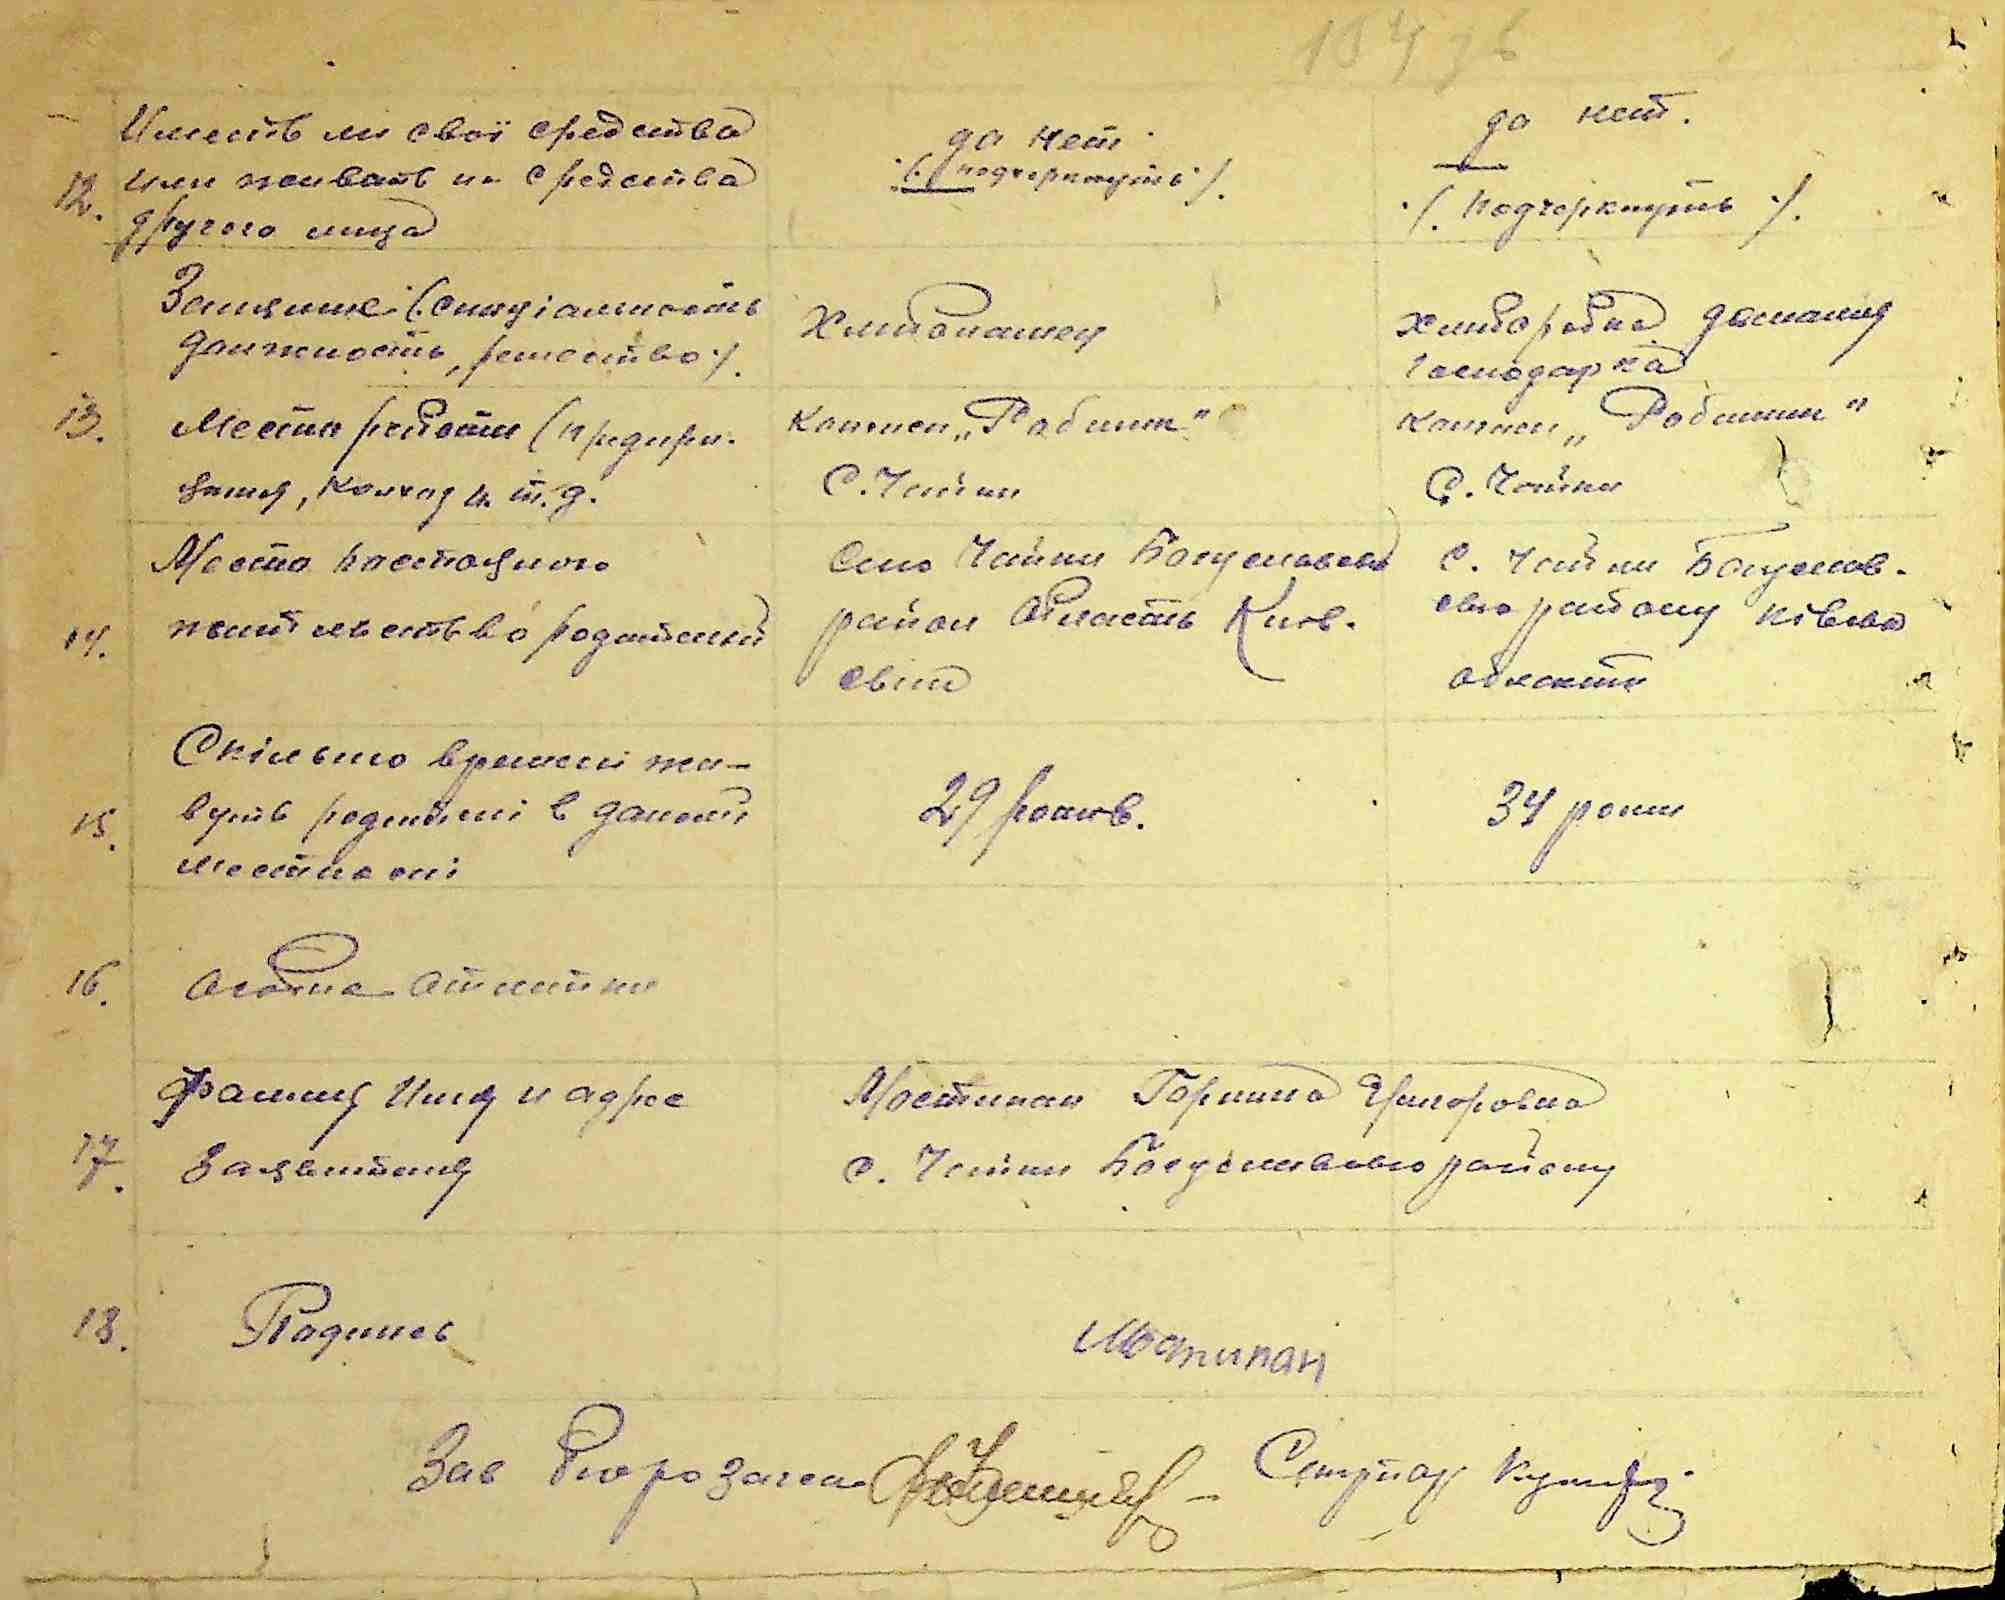 104 зв
12. Имеють ли свої средства
или живать на средства
другого лица
да нет
(подчеркнуть).
да нет.
(подчеркнуть).
Занятие (специальность
должность, ремество).
Хлибопашец
Хлиборобка домашня
господарка
13. Место работи (предпри-
ятия, колхоз и т. д.
колгосп „Робитник"
С. Чайки
колгосп „Робитник"
С. Чайки
14. Место постояного
жительств́о родителей
Село Чайки Богуславский
район Область Київ-
ськи
С. Чайки Богуслав-
сько району Київска
області
15. Скілько времени жи-
вуть родители в даной
местності
29 років.
34 роки
16. Особиє отметки
17. Фамилия Имя и адрес
Заявителя
Мостипан Горпина Григоровна
с. Чайки Богуславсько району
18. Подпись
Мостипан
Зав Бюро загса
Секретар